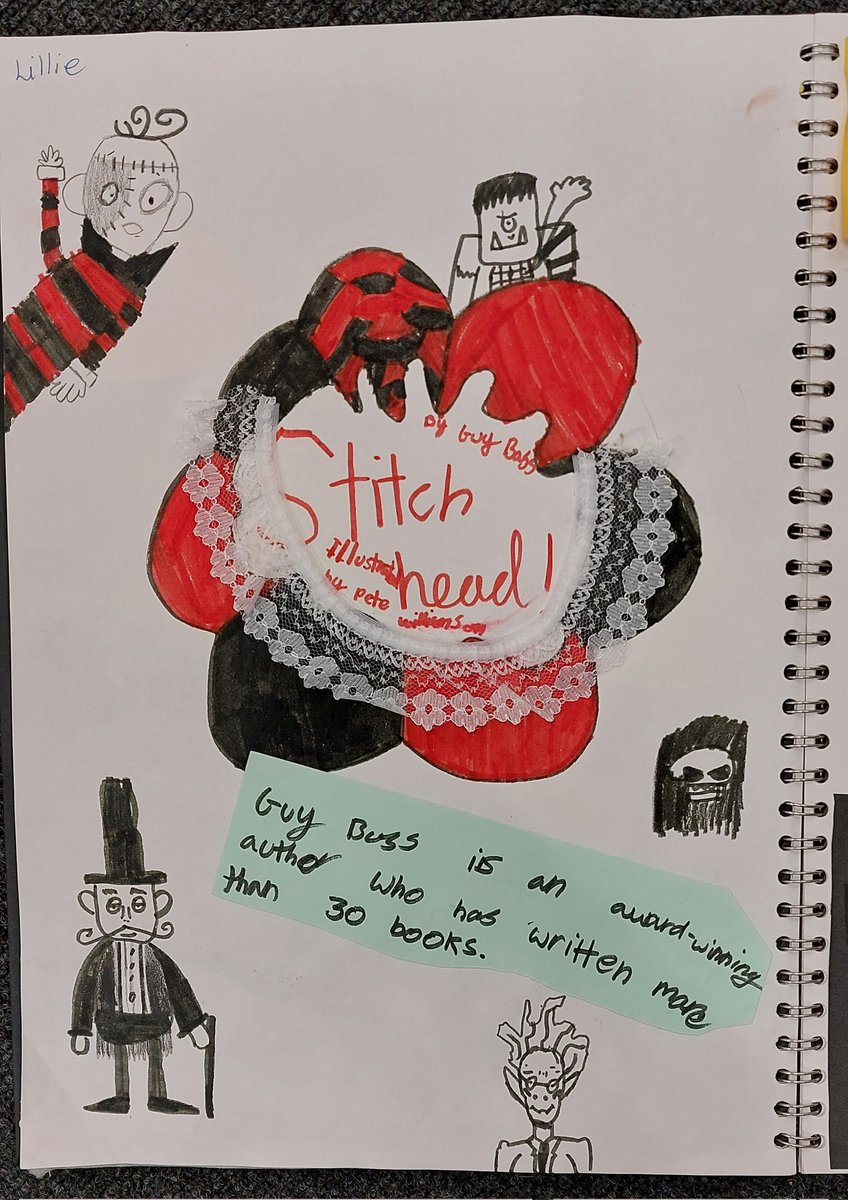 Lillie
by Guy Bass
Stitch
Illustrated
head!
by Pete
williamson
Guy Bass is an award-winning
author who has written more
than 30 books.